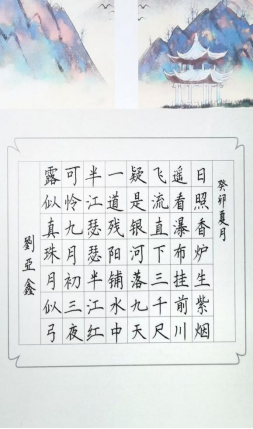 癸卯夏月
日照香炉生紫烟
遥看瀑布挂前川
飞流直下三千尺
疑是银河落九天
一道残阳铺水中
半江瑟瑟半江红
可怜九月初三夜
露似真珠月似弓
劉亞鑫